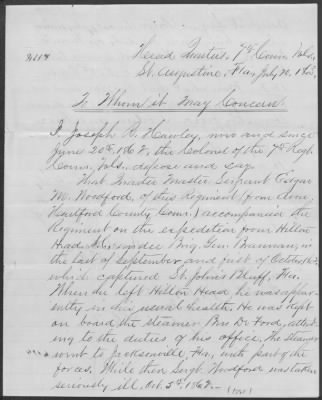 Head Quarters, 7th Conn. Vols.
St. Augustine, Fla, July 20, 1863.
To Whom it May Concern.
I, Joseph R. Hawley, now and since
June 20th, 1862, the Colonel of the 7th Regt.
Conn. Vols., depose and say
That Quarter Master Sergeant
M. Woodford, of this Regiment, (from Avon,
Hartford County Conn.) accompanied the
Regiment on the expedition from Hilton
Head, S.C. under Brig. Gen. Brannan, in
the last of September and first of October, 1862,
which captured St. John's Bluff, Fla.
When he left Hilton Head he was appar-
ently in his usual health. He was kept
on board the steamer Ben De Ford, attend-
ing to the duties of his office. The steamer
went to Jacksonville, Fla, with part of the
forces. While there Sergt. Woodford was taken
seriously ill, Oct. 5th, 1862.—